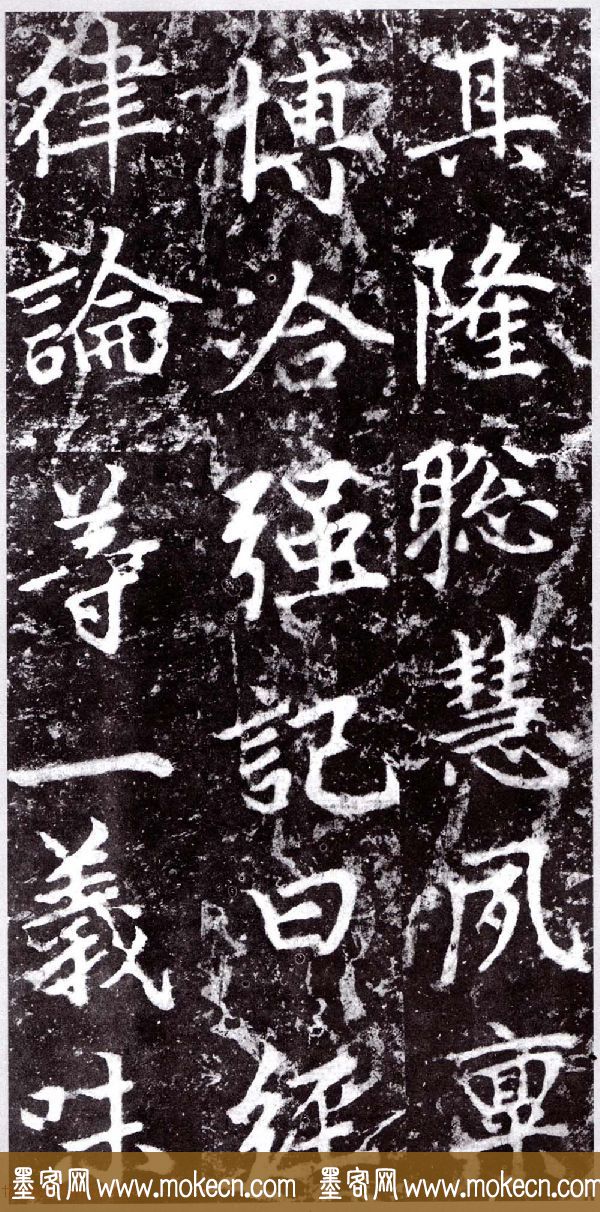 其隆聡慧夙稟
博洽强記曰経
律論等一義味
墨客网 www.mokecn.com 墨客网 www.mokecn.com